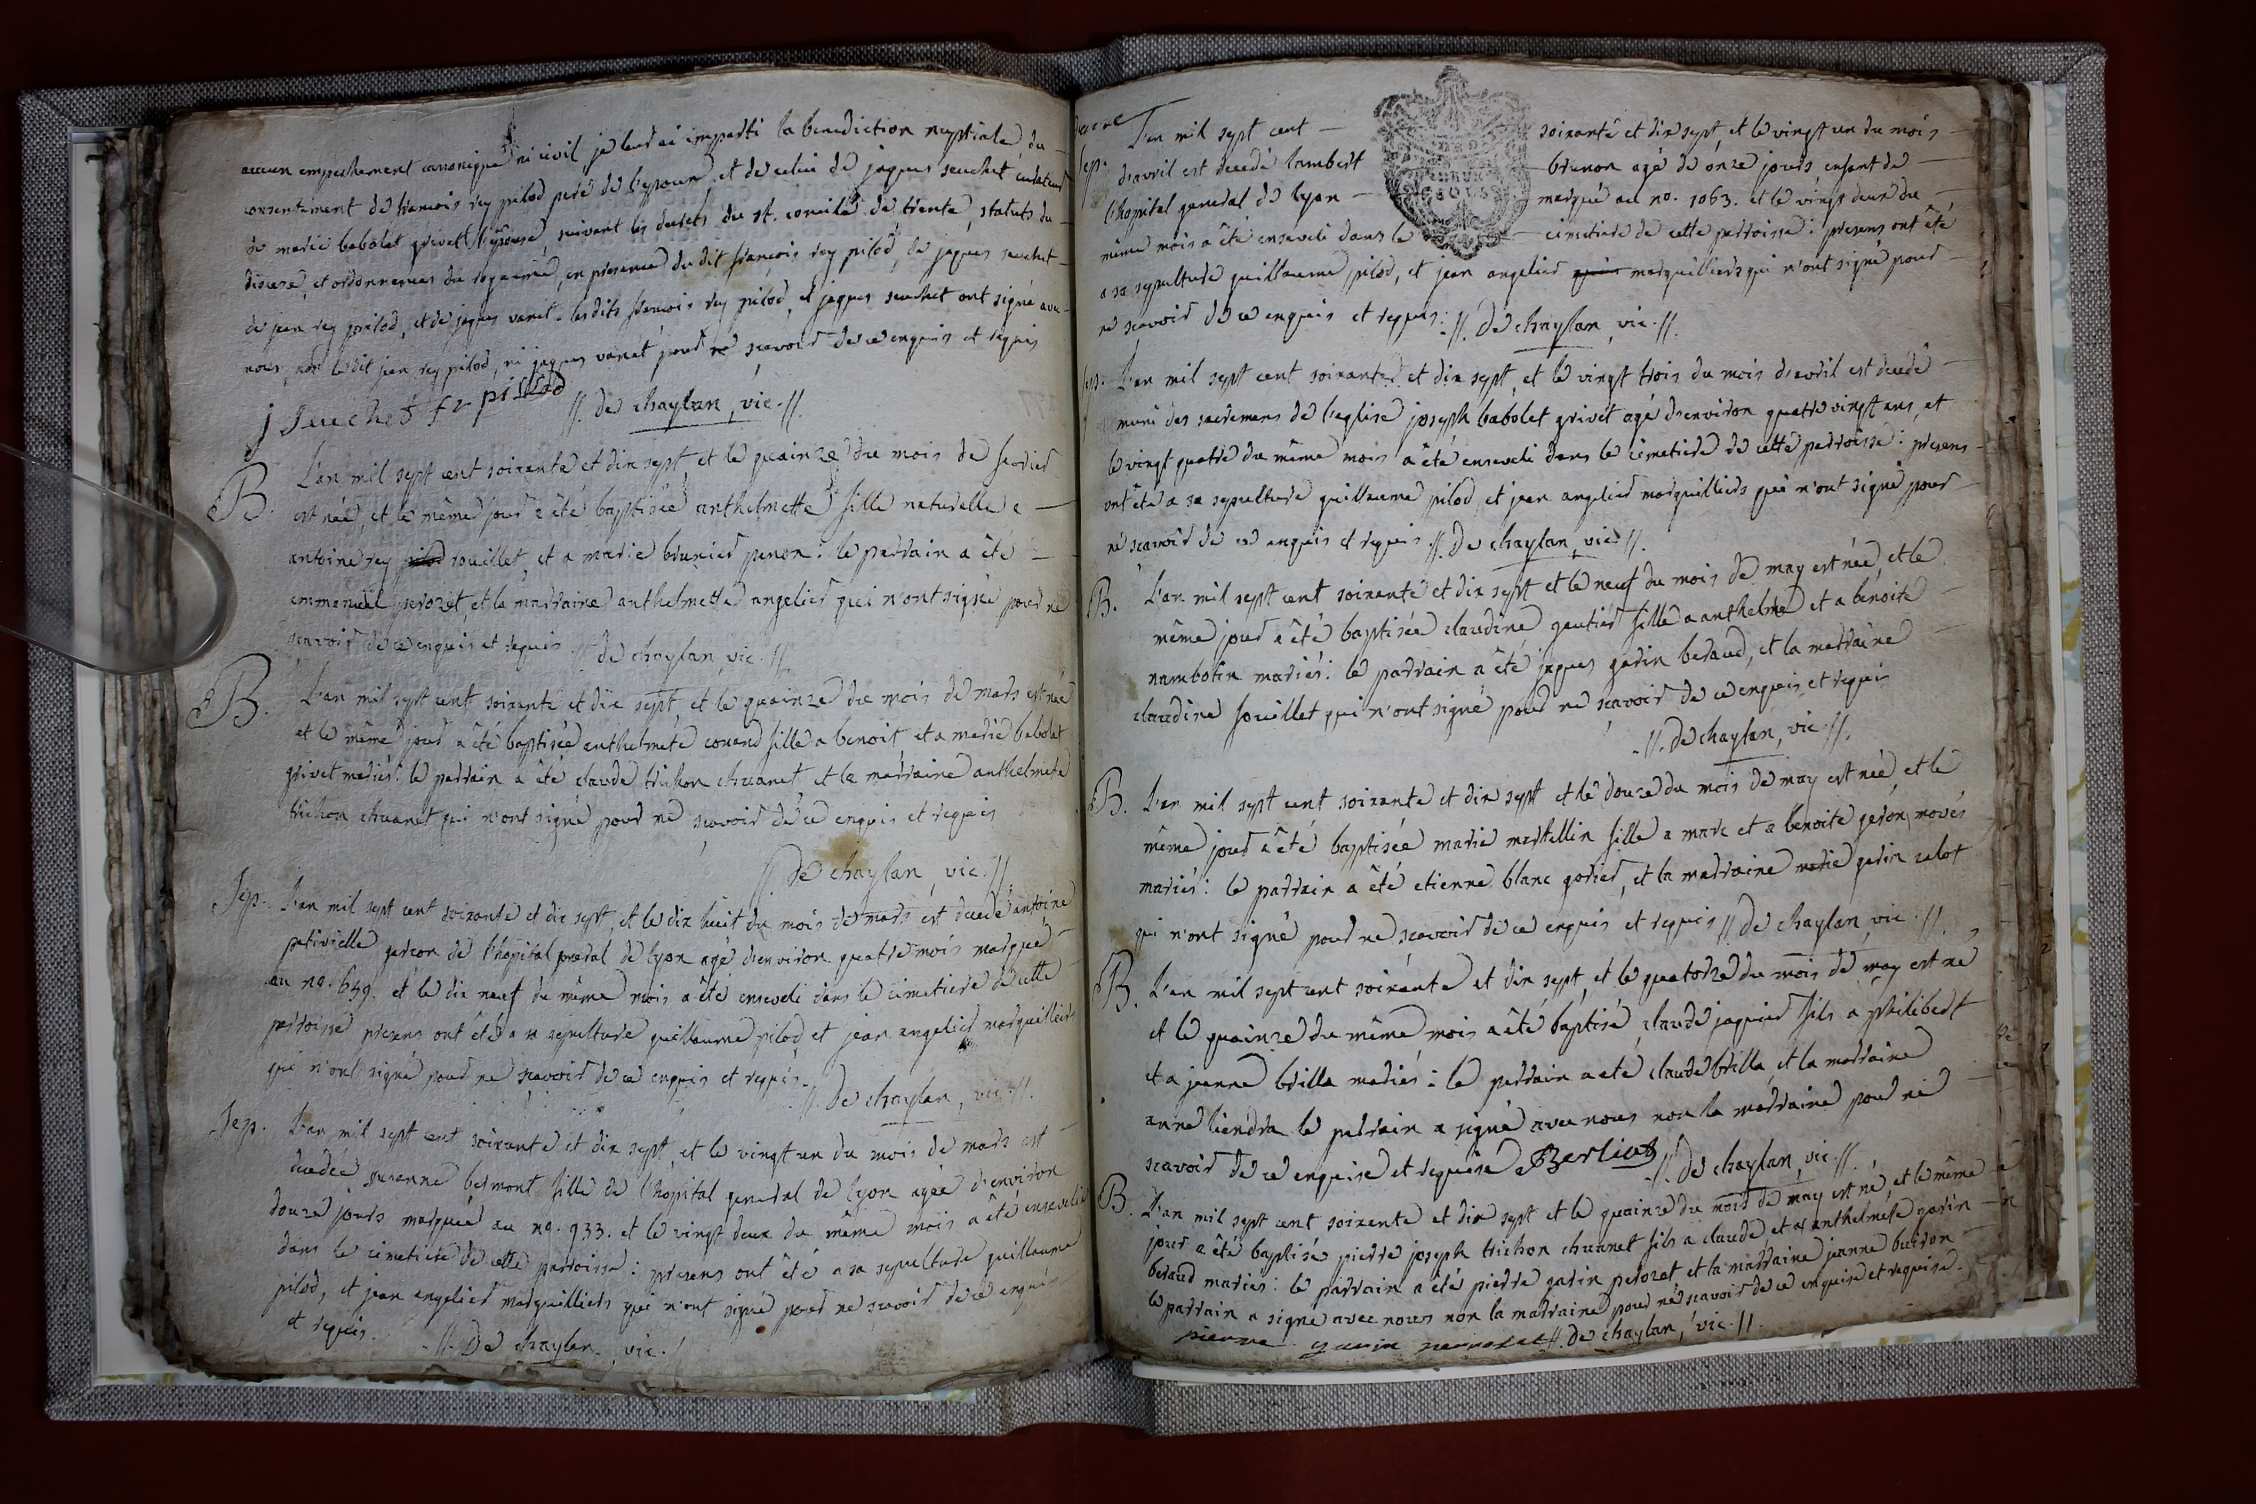 aucun empechement canonique ni civil je leur ai imparti la benediction nuptiale, du
consentement de francois rey pilod pere de l'epoux, et de celui de jaques seuchet curateur
de marie babolat grivet l'épouse, suivant les decrets du st. concile de trente, statuts du
diocese, et ordonnances du royaume, en presence du dit françois rey pilod, de jaques seuchet
de jean rey pilod, et de jaques vanet. les dits francois rey pilod, et jaques seuchet ont signé avec
nous, non le dit jean rey pilod, ni jaques vanet pour ne scavoir de ce enquis et requis
j Seuchet fr pillod //. de chaylan, vic. //.
B. L'an mil sept cent soixante et dix sept, et le quainze du mois de fevrier
est née, et le même jour a été baptisée anthelmette fille naturelle a
antoine rey rouillet, et a marie brunier penon: le parrain a été
emmanuel perozet, et la marraine anthelmette angelier qui n'ont signé pour ne
scavoir de ce enquis et requis //. de chaylan, vic. //.
B. L'an mil sept cent soixante et dix sept, et le quainze du mois de mars est née
et le même jour a été baptisée anthelmete convend fille a benoit, et a marie babolat
grivet mariés: le parrain a été claude trichon chvanet et la marraine anthelmete
trichon chvanet qui n'ont signé pour ne scavoir de ce enquis et requis
//. De chaylan, vic. //
Sep. L'an mil sept cent soixante et dix sept, et le dix huit du mois de mars est decedé antoine
petivielle garcon de l'hopital general de lyon agé d'environ quatre mois marqué
au no. 649. et le dix neuf du même mois a été enseveli dans le cimetiere de cette
parroisse presens ont été a sa sepulture guillaume pilod et jean angelier marguilliers
qui n'ont signé pour ne scavoir de ce enquis et requis. //. De chaylan, vic. //.
Sep. L'an mil sept cent soixante et dix sept, et le vingt un du mois de mars est
decedée suzanne belmont fille de l'hopital general de lyon agée d'environ
douze jours marquée au no. 933. et le vingt deux du même mois a été ensevelie
dans le cimetiere de cette parroisse: presens ont été a sa sepulture guillaume
pilod, et jean angelier marguilliers qui n'ont signé pour ne scavoir de ce enquis
et requis. //. De chaylan, vic. /
Sep. L'an mil sept cent soixante et dix sept, et le vingt un du mois
d'avril est decedé lambert brunon agé de onze jours, enfant de
l'hopital general de lyon marqué au no. 1063. et le vingt deux du
même mois a été enseveli dans le cimetiere de cette parroisse: presens ont été
a sa sepulture guillaume pilod, et jean angelier marguilliers qui n'ont signé pour
ne scavoir de ce enquis et requis: //. De chaylan, vic. //.
Sep. L'an mil sept cent soixante et dix sept, et le vingt trois du mois d'avril est decedé
muni des sacremens de l'eglise joseph babolet grivet agé d'environ quatre vingt ans, et
le vingt quatre du même mois a été enseveli dans le cimetiere de cette parroisse: presens
ont été a sa sepulture guillaume pilod et jean angelier marguilliers qui n'ont signé pour
ne scavoir de ce enquis et requis //. De chaylan, vic //.
B. L'an mil sept cent soixante et dix sept et le neuf du mois de may est née, et le
même jour a été baptisée claudine gautier fille a anthelme et a benoite
nambotin mariés: le parrain a été jaques garin beraud, et la marraine
claudine souillet qui n'ont signé pour ne scavoir de ce enquis et requis
//. de chaylan, vic. //.
B. L'an mil sept cent soixante et dix sept et le douze du mois de may est née et le
même jour a été baptisée marie martellin fille a marc et a benoite peron movés
mariés: le parrain a été etienne blanc gorier, et la marraine marie garin calot
qui n'ont signé pour ne scavoir de ce enquis et requis //. De chaylan, vic. //.
B. L'an mil sept cent soixante et dix sept, et le quatorze du mois de may est né
et le quainze du même mois a été baptisé claude jaquier fils a philibert
et a jeanne brilla mariés: le parrain a eté claude brilla, et la marraine
anne liendra le parrain a signé avec nous non la marraine pour ne
scavoir de ce enquise et requise Berliet //. De chaylan, vic. //.
B. L'an mil sept cent soixante et dix sept et le quainze du mois de may est né, et le même
jour a été baptisé pierre joseph trichon chvanet fils a claude, et a anthelmete garin
beraud mariés: le parrain a été pierre garin perozet, et la marraine jeanne buiron
le parrain a signé avec nous non la marraine pour ne scavoir de ce enquise et requise.
pierre garin perrozet //. de chaylan, vic. //.